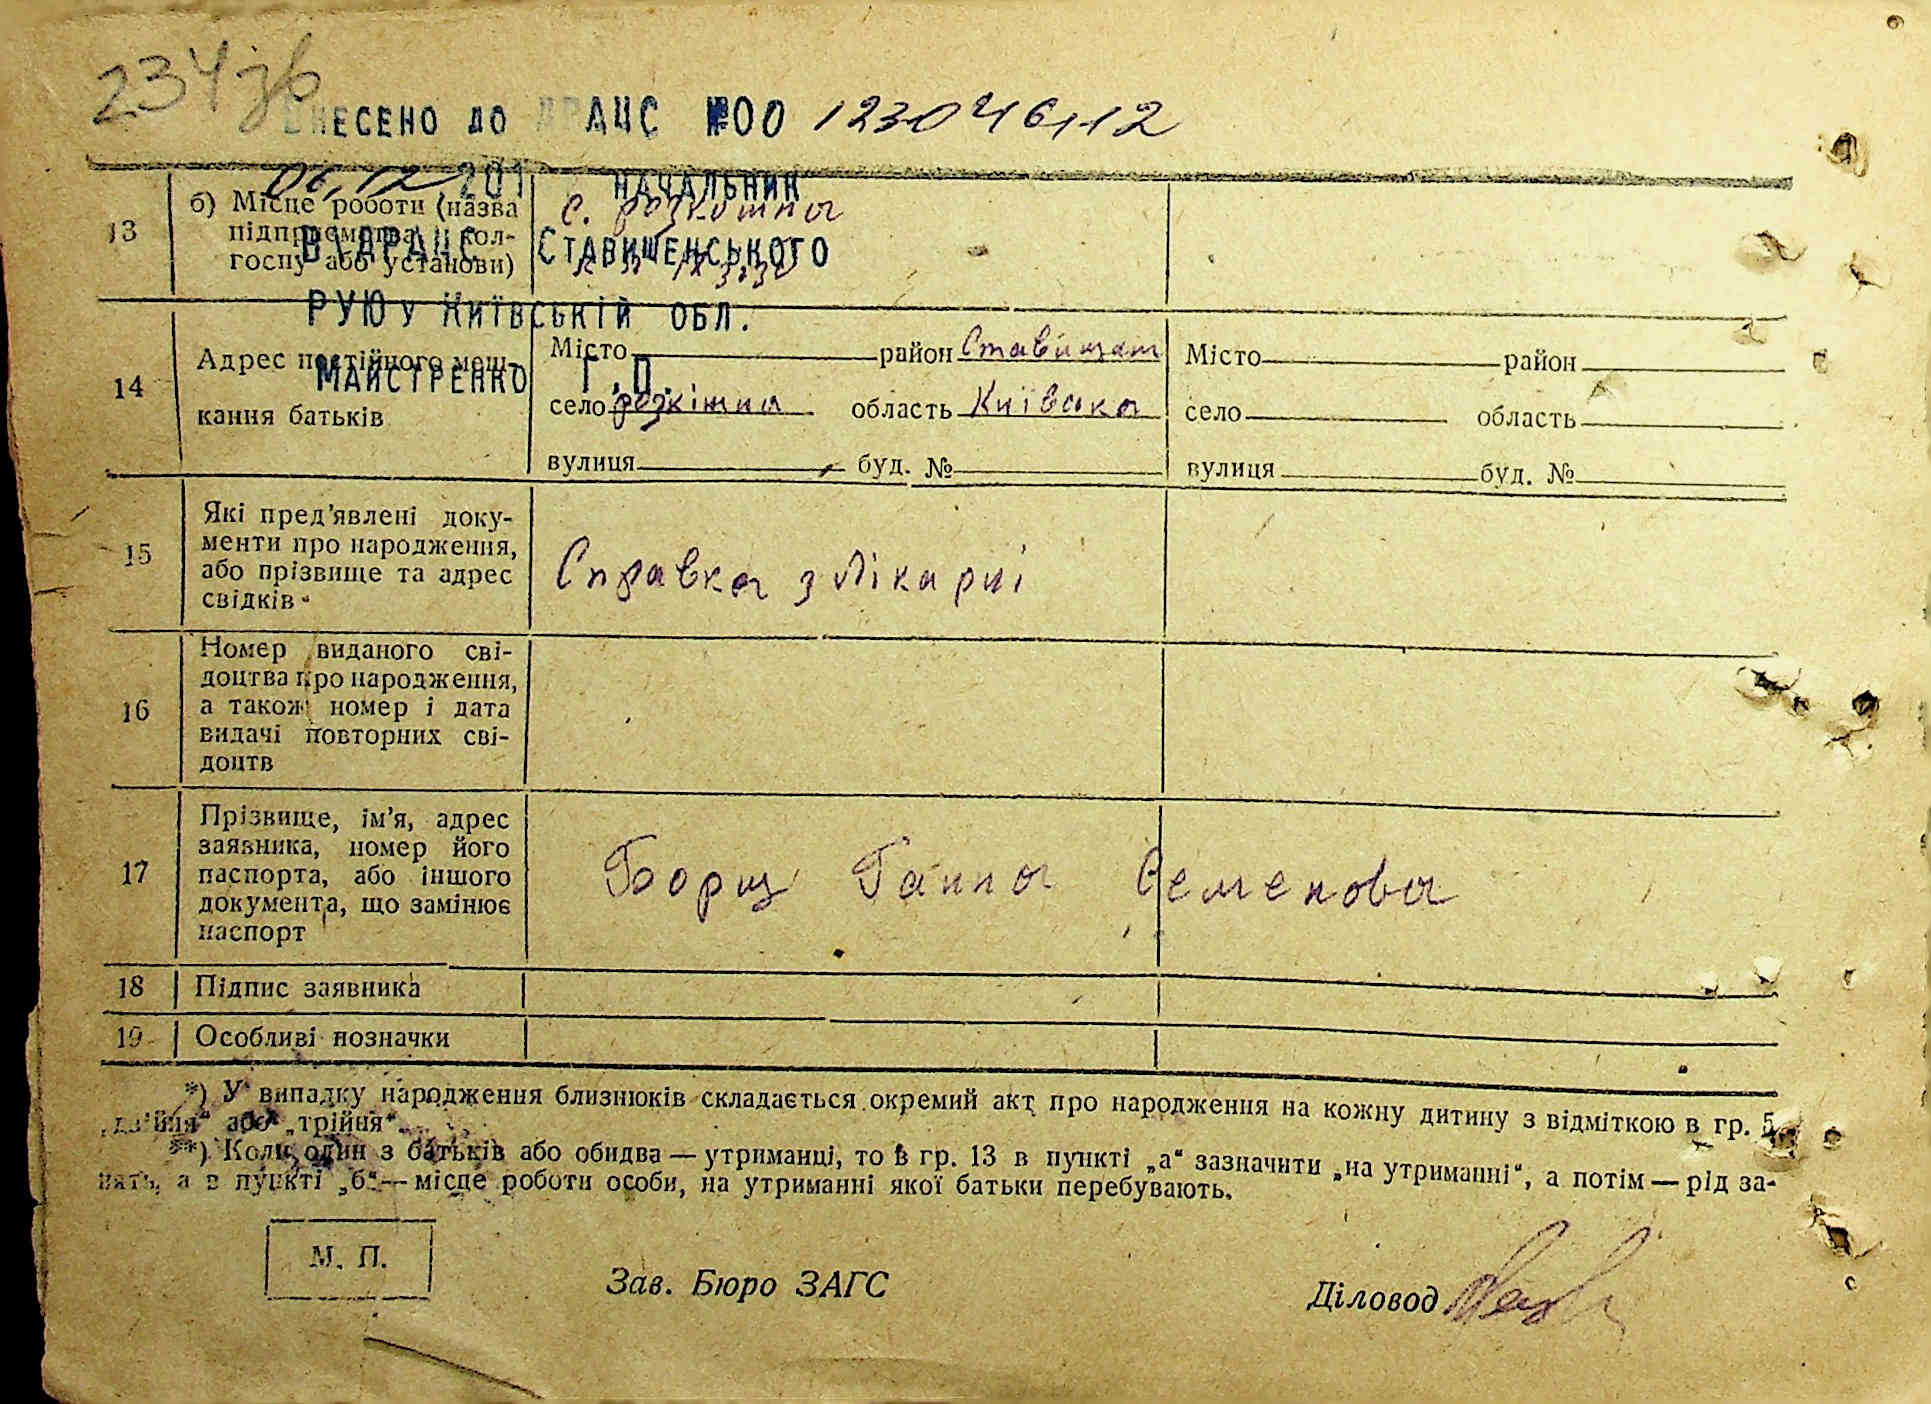 234зв
ВНЕСЕНО ДО ДРАЦС №00 123046112
06,12 201 НАЧАЛЬНИК
13 б) Місце роботи (назва підприємства, кол-госпу або установи) с. розкошна
ВДРАЦС СТАВИЩЕНСЬКОГО
РУЮ У КИЇВСЬКІЙ ОБЛ.
МАЙСТРЕНКО Г.П.
14 Адрес постійного меш-
кання батьків
Місто район Ставищан
село розкішна область Київска
вулиця буд. №
Місто район
село область
вулиця буд. №
15 Які пред'явлені доку-
менти про народження,
або прізвище та адрес
свідків
Справка з лікарні
16 Номер виданого сві-
доцтва про народження,
а також номер і дата
видачі повторних сві-
доцтв
17 Прізвище, ім'я, адрес
заявника, номер його
паспорта, або іншого
документа, що замінює
паспорт
Борщ Ганна Семенова
18 Підпис заявника
19 Особливі позначки
*) У випадку народження близнюків складається окремий акт про народження на кожну дитину з відміткою в гр. 5
„двійня“ або „трійня“.
**) Коли один з батьків або обидва — утриманці, то в гр. 13 в пункті „а“ зазначити „на утриманні“, а потім — рід за-
нять, а в пункті „б“ — місце роботи особи, на утриманні якої батьки перебувають.
М. П.
Зав. Бюро ЗАГС
Діловод